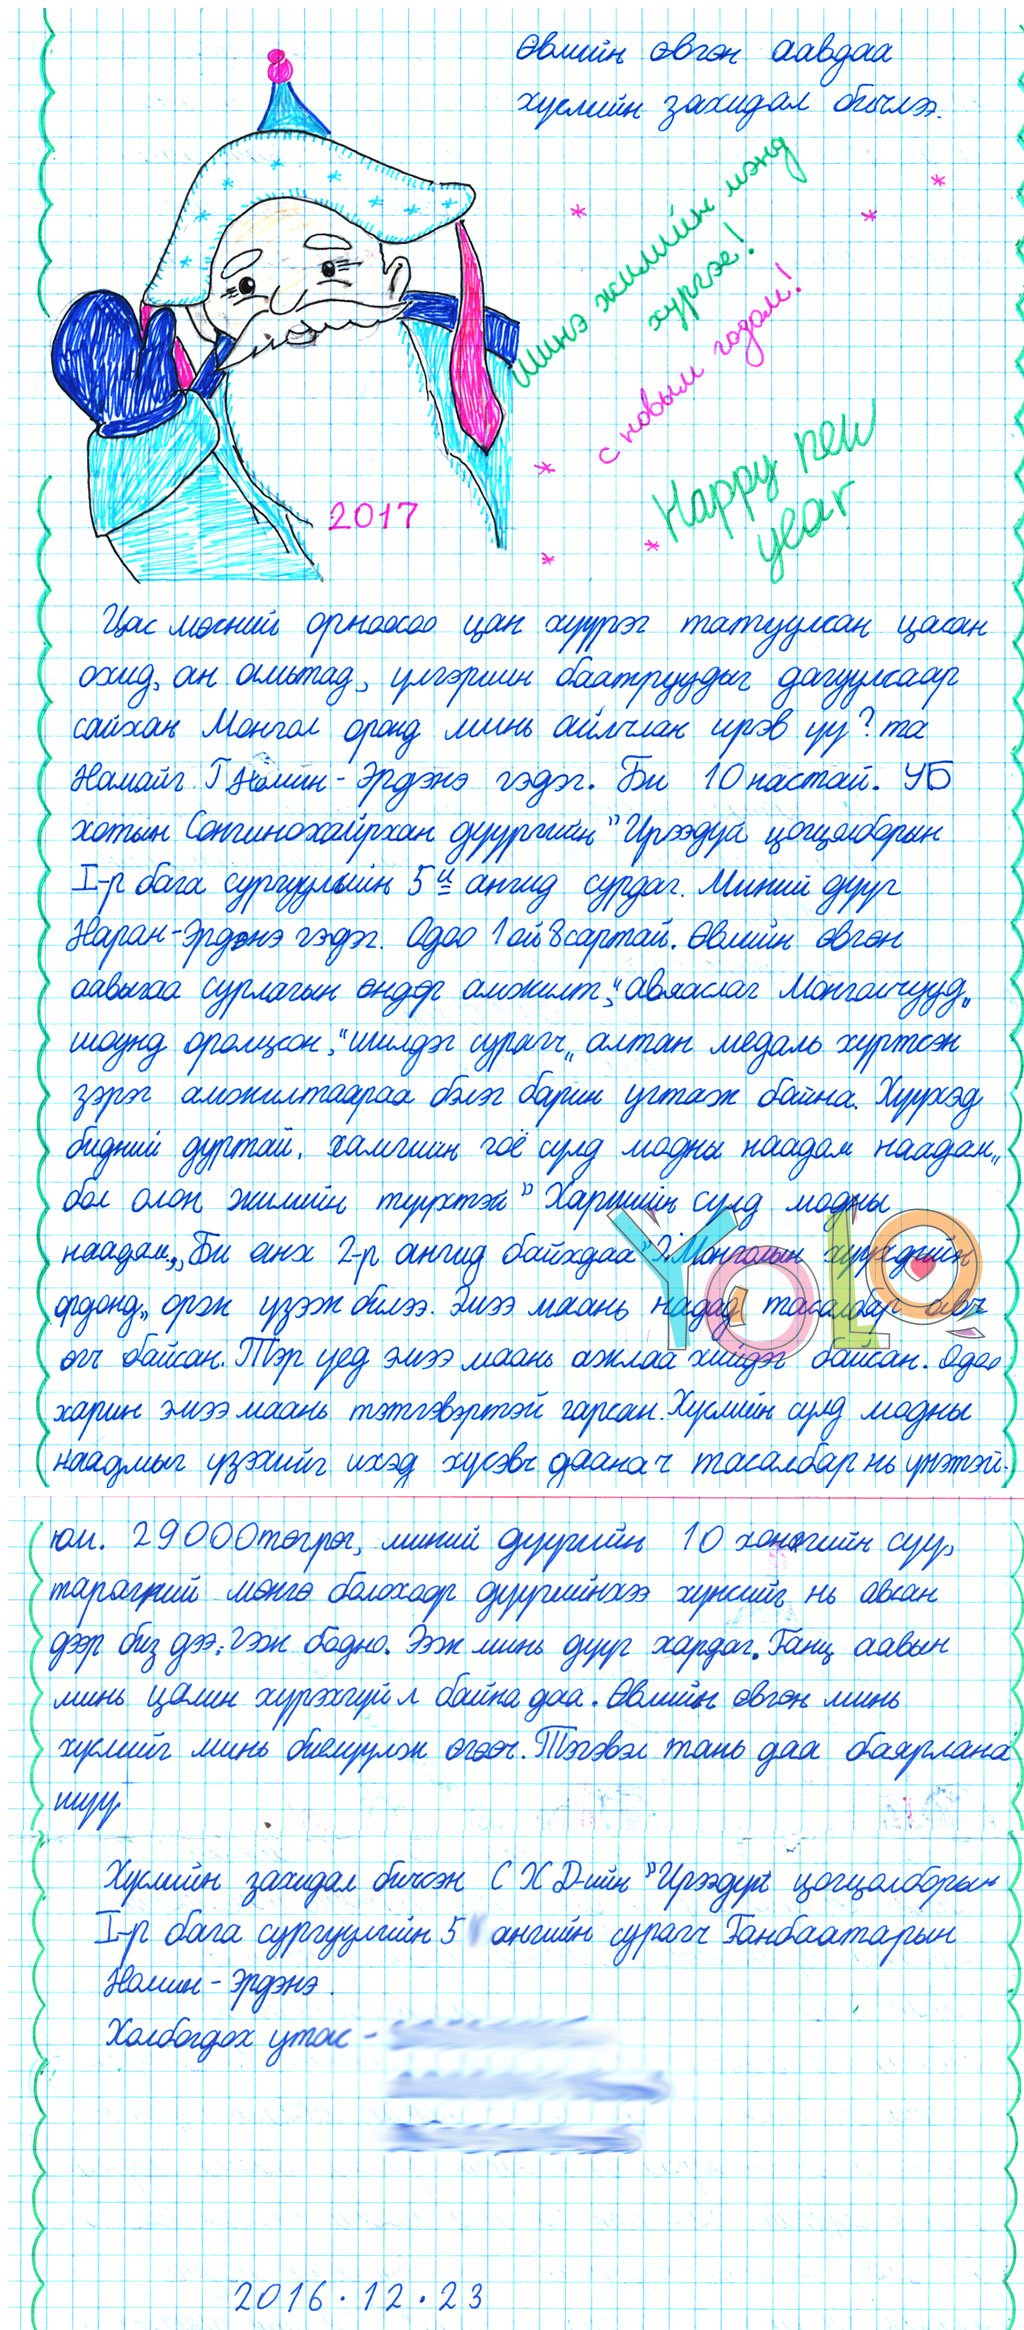 Өвлийн өвгөн аавдаа
хүслийн захидал бичлээ.
Шинэ жилийн мэнд
хүргэе!
С новым годом!
Happy new
year
2017
Цас мөсний орноосоо цан хүүрэг татуулсан цасан
охид, ан амьтад, үлгэрийн баатруудыг дагуулсаар
сайхан Монгол оронд минь айлчлан ирэв үү? та
Намайг Г Номин-Эрдэнэ гэдэг. Би 10 настай. УБ
хотын Сонгинохайрхан дүүргийн "Ирээдүй цогцолборын
I-р бага сургуулийн 5и ангид сурдаг. Миний дүүг
Наран-Эрдэнэ гэдэг. Одоо 1 ой 8 сартай. Өвлийн өвгөн
аавыгаа сурлагын өндөр амжилт, "авьяаслаг Монголчууд„
шоунд оролцсон, "шилдэг сурагч„ алтан медаль хүртсэн
зэрэг амжилтаараа бэлэг барин угтаж байна. Хүүхэд
бидний дуртай, хамгийн гоё сүлд модны наадам наадам„
бол олон жилийн түүхтэй "Харшийн сүлд модны
наадам„. Би анх 2-р ангид байхдаа "Монголын хүүхдийн
ордонд„ орж үзэж билээ. Эмээ маань надад тасалбар авч
өгч байсан. Тэр үед эмээ маань ажлаа хийдэг байсан. Одоо
харин эмээ маань тэтгэвэртэй гарсан. Хүслийн сүлд модны
наадмыг үзэхийг ихэд хүсэвч даанач тасалбар нь үнэтэй
юм. 29000төгрөг, миний дүүгийн 10 хоногийн сүү,
тарагний мөнгө болохоор дүүгийнхээ хүнсийг нь авсан
дээр биз дээ, гэж бодно. Ээж минь дүүг хардаг. Ганц аавын
минь цалин хүрэхгүй л байна даа. Өвлийн өвгөн минь
хүслийг минь биелүүлж өгөөч. Тэгвэл тань даа баярлана
шүү
Хүслийн захидал бичсэн СХД-ийн "Ирээдүй цогцолборын
I-р бага сургуулийн 5 ангийн сурагч Ганбаатарын
Номин-Эрдэнэ.
Холбогдох утас -
2016.12.23
YOLO